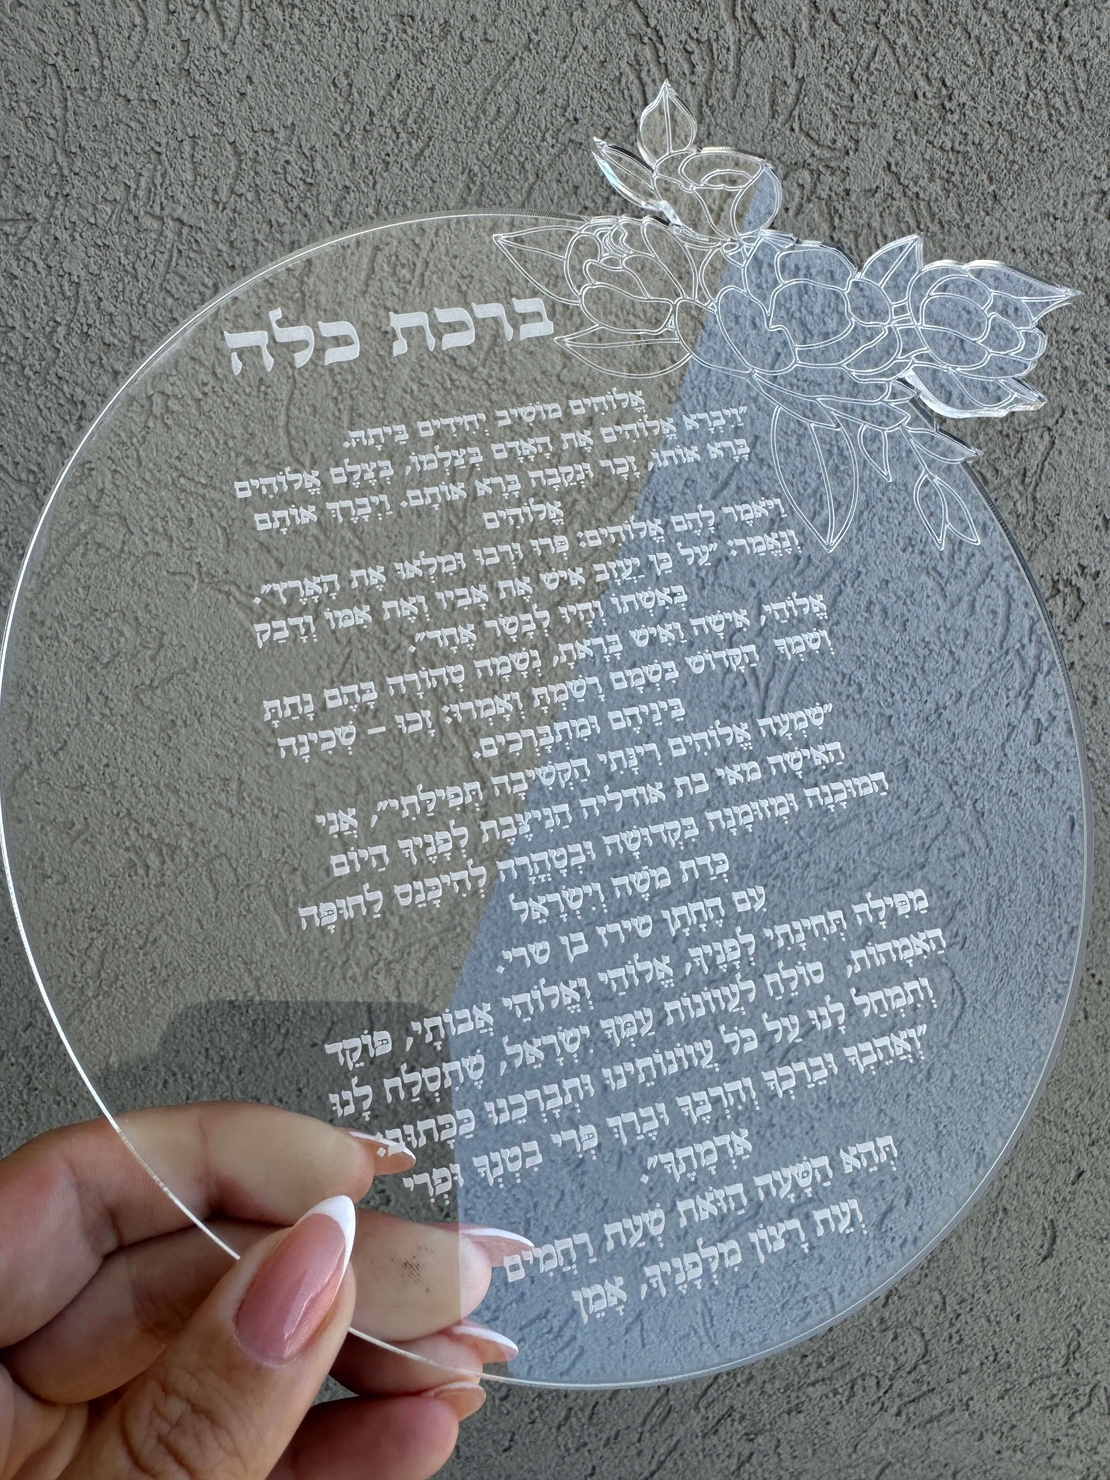 ברכת כלה
אֱלוֹהִים מוֹשִׁיב יְחִידִים בַּיְתָה.
"וַיִּבְרָא אֱלוֹהִים אֶת הָאָדָם בְּצַלְמוֹ, בְּצֶלֶם אֱלוֹהִים
בָּרָא אוֹתוֹ, זָכָר וּנְקֵבָה בָּרָא אוֹתָם. וַיְבָרֶךְ אוֹתָם
אֱלוֹהִים
וַיֹּאמֶר לָהֶם אֱלוֹהִים: פְּרוּ וּרְבוּ וּמִלְאוּ אֶת הָאָרֶץ".
וְנֶאֱמַר: "עַל כֵּן יַעֲזָב אִישׁ אֶת אָבִיו וְאֶת אִמּוֹ וְדָבַק
בְּאִשְׁתּוֹ וְהָיוּ לְבָשָׂר אֶחָד".
אֱלוֹהַי, אִישָׁה וְאִישׁ בָּרָאתָ, נְשָׁמָה טְהוֹרָה בָּהֶם נָתַתָּ
וְשִׁמְךָ הַקָּדוֹשׁ בִּשְׁמָם רָשַׁמְתָּ וְאָמַרוּ: זָכוּ – שְׁכִינָה
בֵּינֵיהֶם וּמִתְבָּרְכִים.
"שִׁמְעָה אֱלוֹהִים רִינָּתִי הַקְשִׁיבָה תְּפִילָּתִי", אֲנִי
האישה מאי בת אודליה הַנִּיצֶּבֶת לְפָנֶיךָ הַיּוֹם
הַמּוּכָנָה וּמְזוּמָּנָה בִּקְדוּשָּׁה וּבְטָהֳרָה לְהִיכָּנֵס לַחוּפָּה
כְּדַת מֹשֶׁה וְיִשְׂרָאֵל
עִם הֶחָתָן שירז בן שרי.
מַפִּילָה תְּחִינָּתִי לְפָנֶיךָ, אֱלוֹהַי וְאֱלוֹהֵי אֲבוֹתַי, פּוֹקֵד
הָאִמָּהוֹת, סוֹלֵחַ לַעֲווֹנוֹת עַמְּךָ יִשְׂרָאֵל, שֶׁתִּסְלַח לָנוּ
וְתִמְחַל לָנוּ עַל כֹּל עֲווֹנוֹתֵינוּ וּתְבָרְכֵנוּ כַּכָּתוּב:
"וַאֲהֵבְךָ וּבֵרַכְךָ וְהִרְבֶּךָ וּבֵרַךְ פְּרִי בִטְנְךָ וּפְרִי
אַדְמָתֶךָ".
תְּהֵא הַשָּׁעָה הַזּוֹאת שְׁעַת רַחֲמִים
וְעֵת רָצוֹן מִלְּפָנֶיךָ, אָמֵן